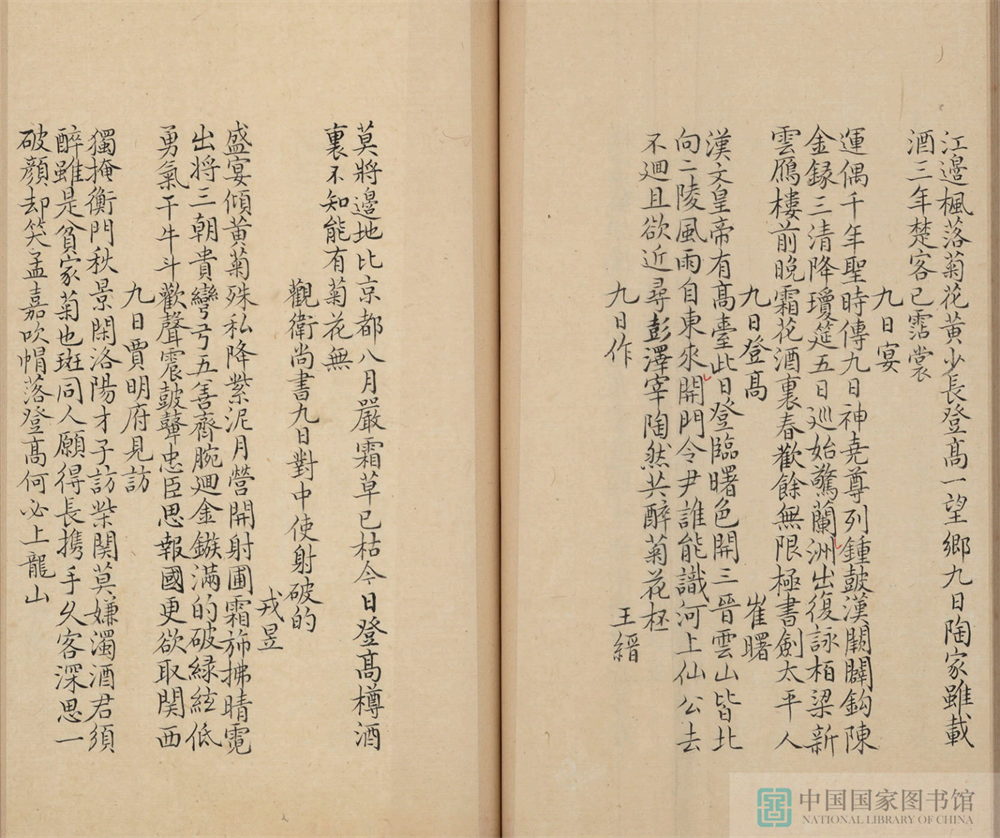 江邊楓落菊花黃少長登高一望鄉九日陶家雖載
酒三年楚客已霑裳
九日宴
運偶千年聖時傳九日神堯尊列鍾皷漢闕闢鈎陳
金録三清降瓊筵五日廵始驚蘭洲出復詠栢梁新
雲鴈樓前晚霜花酒裏春歡餘無限極書劍太平人
九日登高 崔曙
漢文皇帝有高臺此日登臨曙色開三晉雲山皆北
向二陵風雨自東來開門令尹誰能識河上仙公去
不廻且欲近尋彭澤宰陶然共醉菊花柸
九日作 王縉
莫將邊地比京都八月嚴霜草已枯今日登高樽酒
裏不知能有菊花無
觀衛尚書九日對中使射破的
戎昱
盛宴傾黃菊殊私降紫泥月營開射圃霜斾拂晴霓
出將三朝貴彎弓五善齊腕廻金鏃滿的破緑絃低
勇氣干牛斗歡聲震皷鼙忠臣思報國更欲取関西
九日賈明府見訪
獨掩衡門秋景閑洛陽才子訪柴関莫嫌濁酒君須
醉雖是貧家菊也斑同人願得長携手久客深思一
破顏却笑孟嘉吹帽落登高何必上龍山
中国国家图书馆
NATIONAL LIBRARY OF CHINA